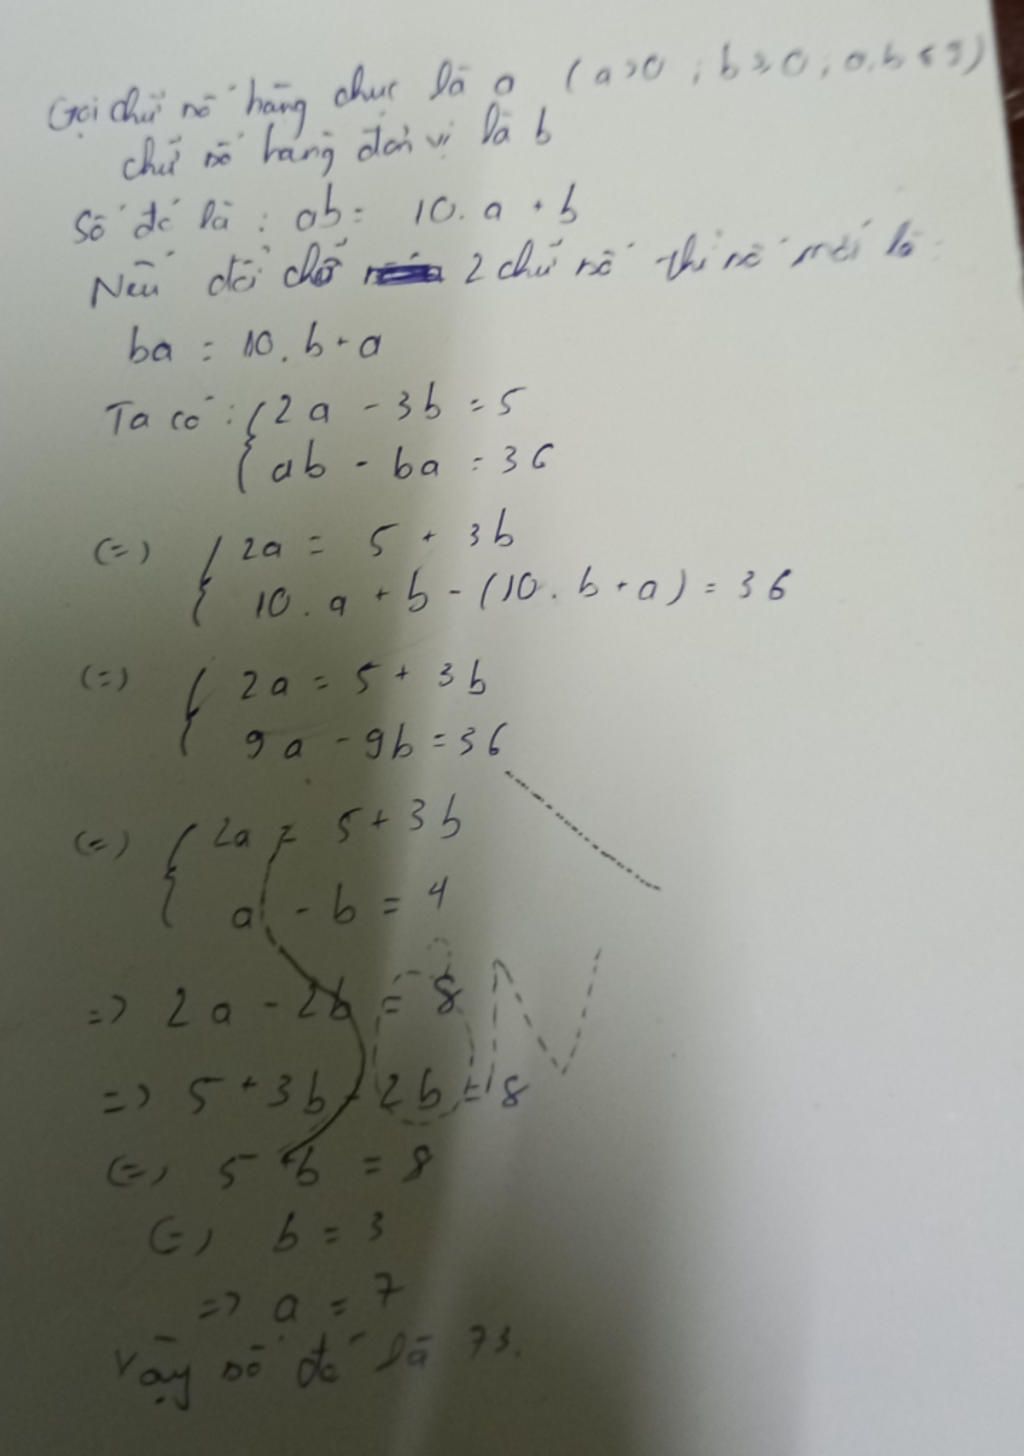 Gọi chữ số hàng chục là a (a>0; b≥0; a,b≤9)
chữ số hàng đơn vị là b
Số đó là: ab = 10.a + b
Nếu đổi chỗ 2 chữ số thì số mới là:
ba = 10.b + a
Ta có: { 2a - 3b = 5
{ ab - ba = 36
(=) { 2a = 5 + 3b
{ 10.a + b - (10.b + a) = 36
(=) { 2a = 5 + 3b
{ 9a - 9b = 36
(=) { 2a = 5 + 3b
{ a - b = 4
=> 2a - 2b = 8
=> 5 + 3b - 2b = 8
(=) 5 + b = 8
(=) b = 3
=> a = 7
Vậy số đó là 73.